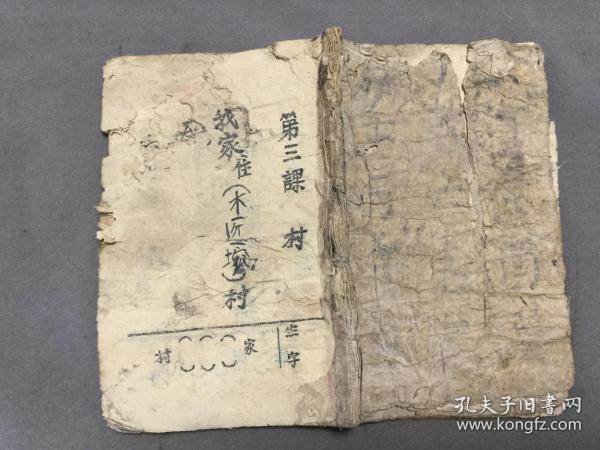 第三課 村
我家住(木匠塆)村
生字
家
村
孔夫子旧書网
www.kongfz.com